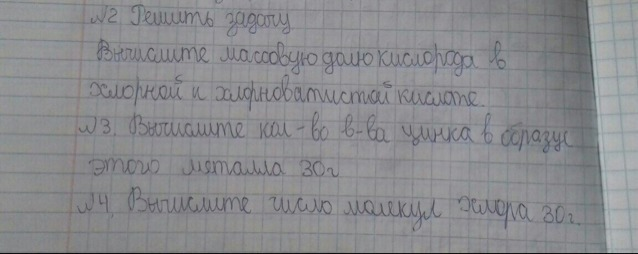 №2 Решить задачу
Вычислите массовую долю кислорода в
хлорной и хлорноватистой кислоте.
№3. Вычислите кол-во в-ва цинка в образце
этого металла 30г
№4. Вычислите число молекул хлора 30г.